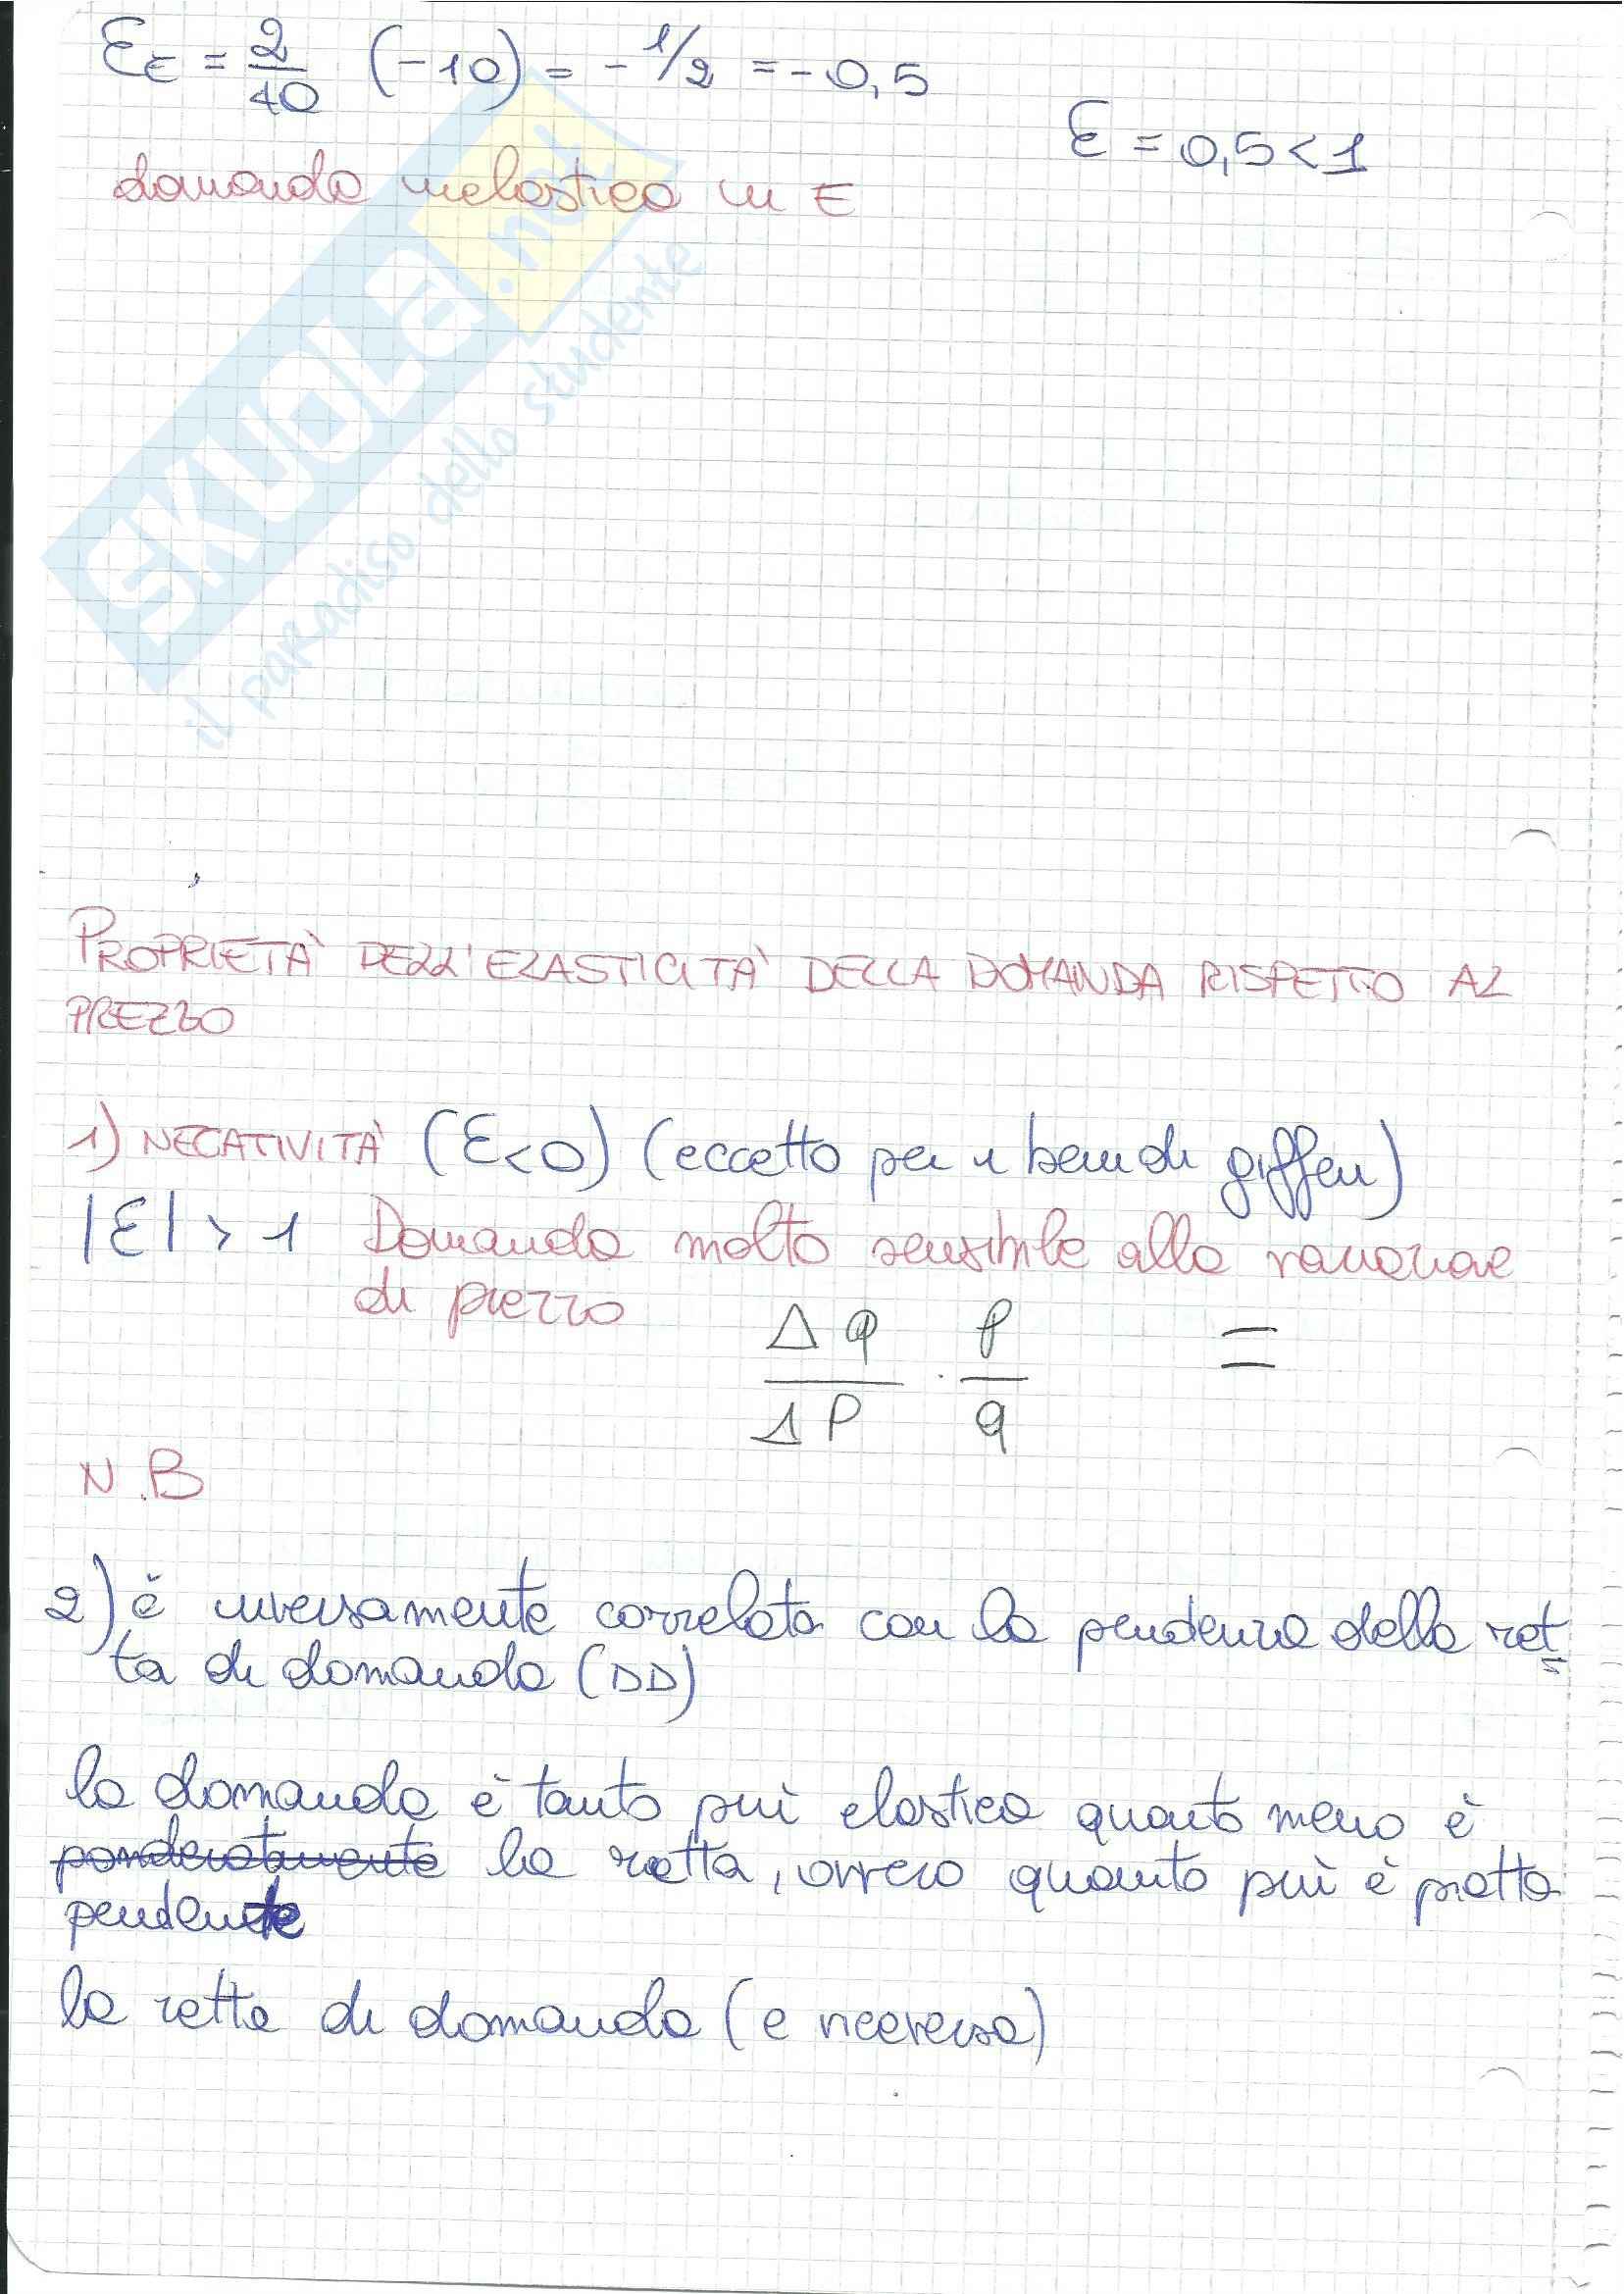 Ɛ_E = 2/40 (-10) = - 1/2 = -0,5
Ɛ = 0,5 < 1
domanda inelastica in E
SKUOLA.net
il paradiso dello studente
PROPRIETÀ DELL'ELASTICITÀ DELLA DOMANDA RISPETTO AL
PREZZO
1) NEGATIVITÀ (Ɛ<0) (eccetto per i beni di giffen)
|Ɛ| > 1 Domanda molto sensibile alla variazione
di prezzo
Δq/ΔP · P/q =
N.B
2) è inversamente correlata con la pendenza della ret
ta di domanda (DD)
la domanda è tanto più elastica quanto meno è
ponderatamente la retta, ovvero quanto più è piatta
pendente
la retta di domanda (e viceversa)